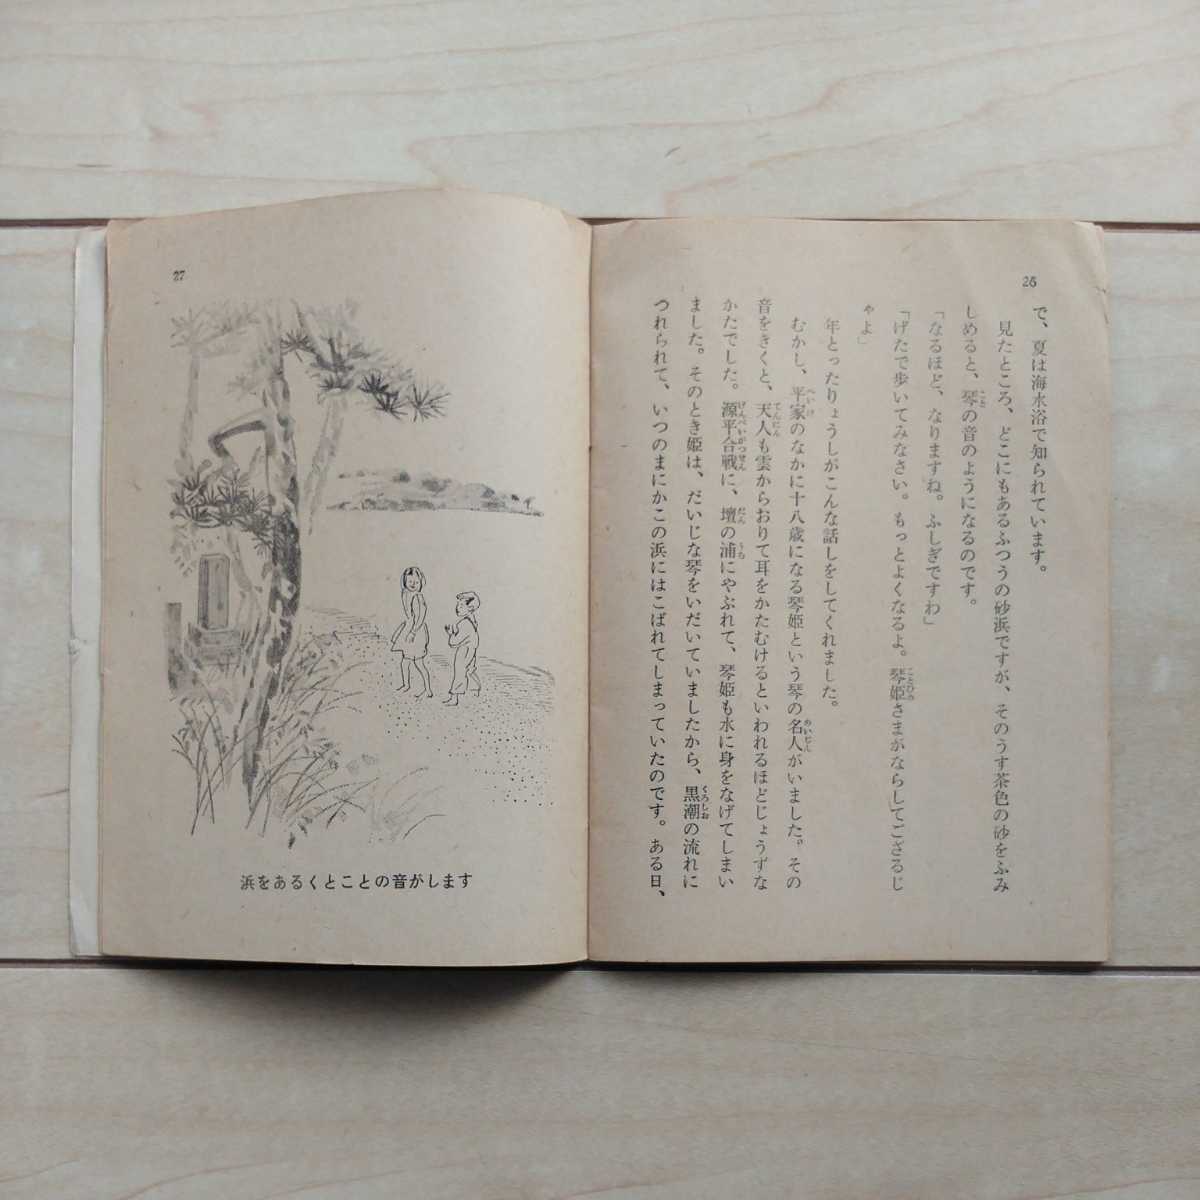 26
で、夏は海水浴で知られています。
見たところ、どこにもあるふつうの砂浜ですが、そのうす茶色の砂をふみ
しめると、琴の音のようになるのです。
「なるほど、なりますね。ふしぎですわ」
「げたで歩いてみなさい。もっとよくなるよ。琴姫さまがならしてござるじ
ゃよ」
年とったりょうしがこんな話しをしてくれました。
むかし、平家のなかに十八歳になる琴姫という琴の名人がいました。その
音をきくと、天人も雲からおりて耳をかたむけるといわれるほどじょうずな
かたでした。源平合戦に、壇の浦にやぶれて、琴姫も水に身をなげてしまい
ました。そのとき姫は、だいじな琴をいだいていましたから、黒潮の流れに
つれられて、いつのまにかこの浜にはこばれてしまっていたのです。ある日、
27
浜をあるくとことの音がします